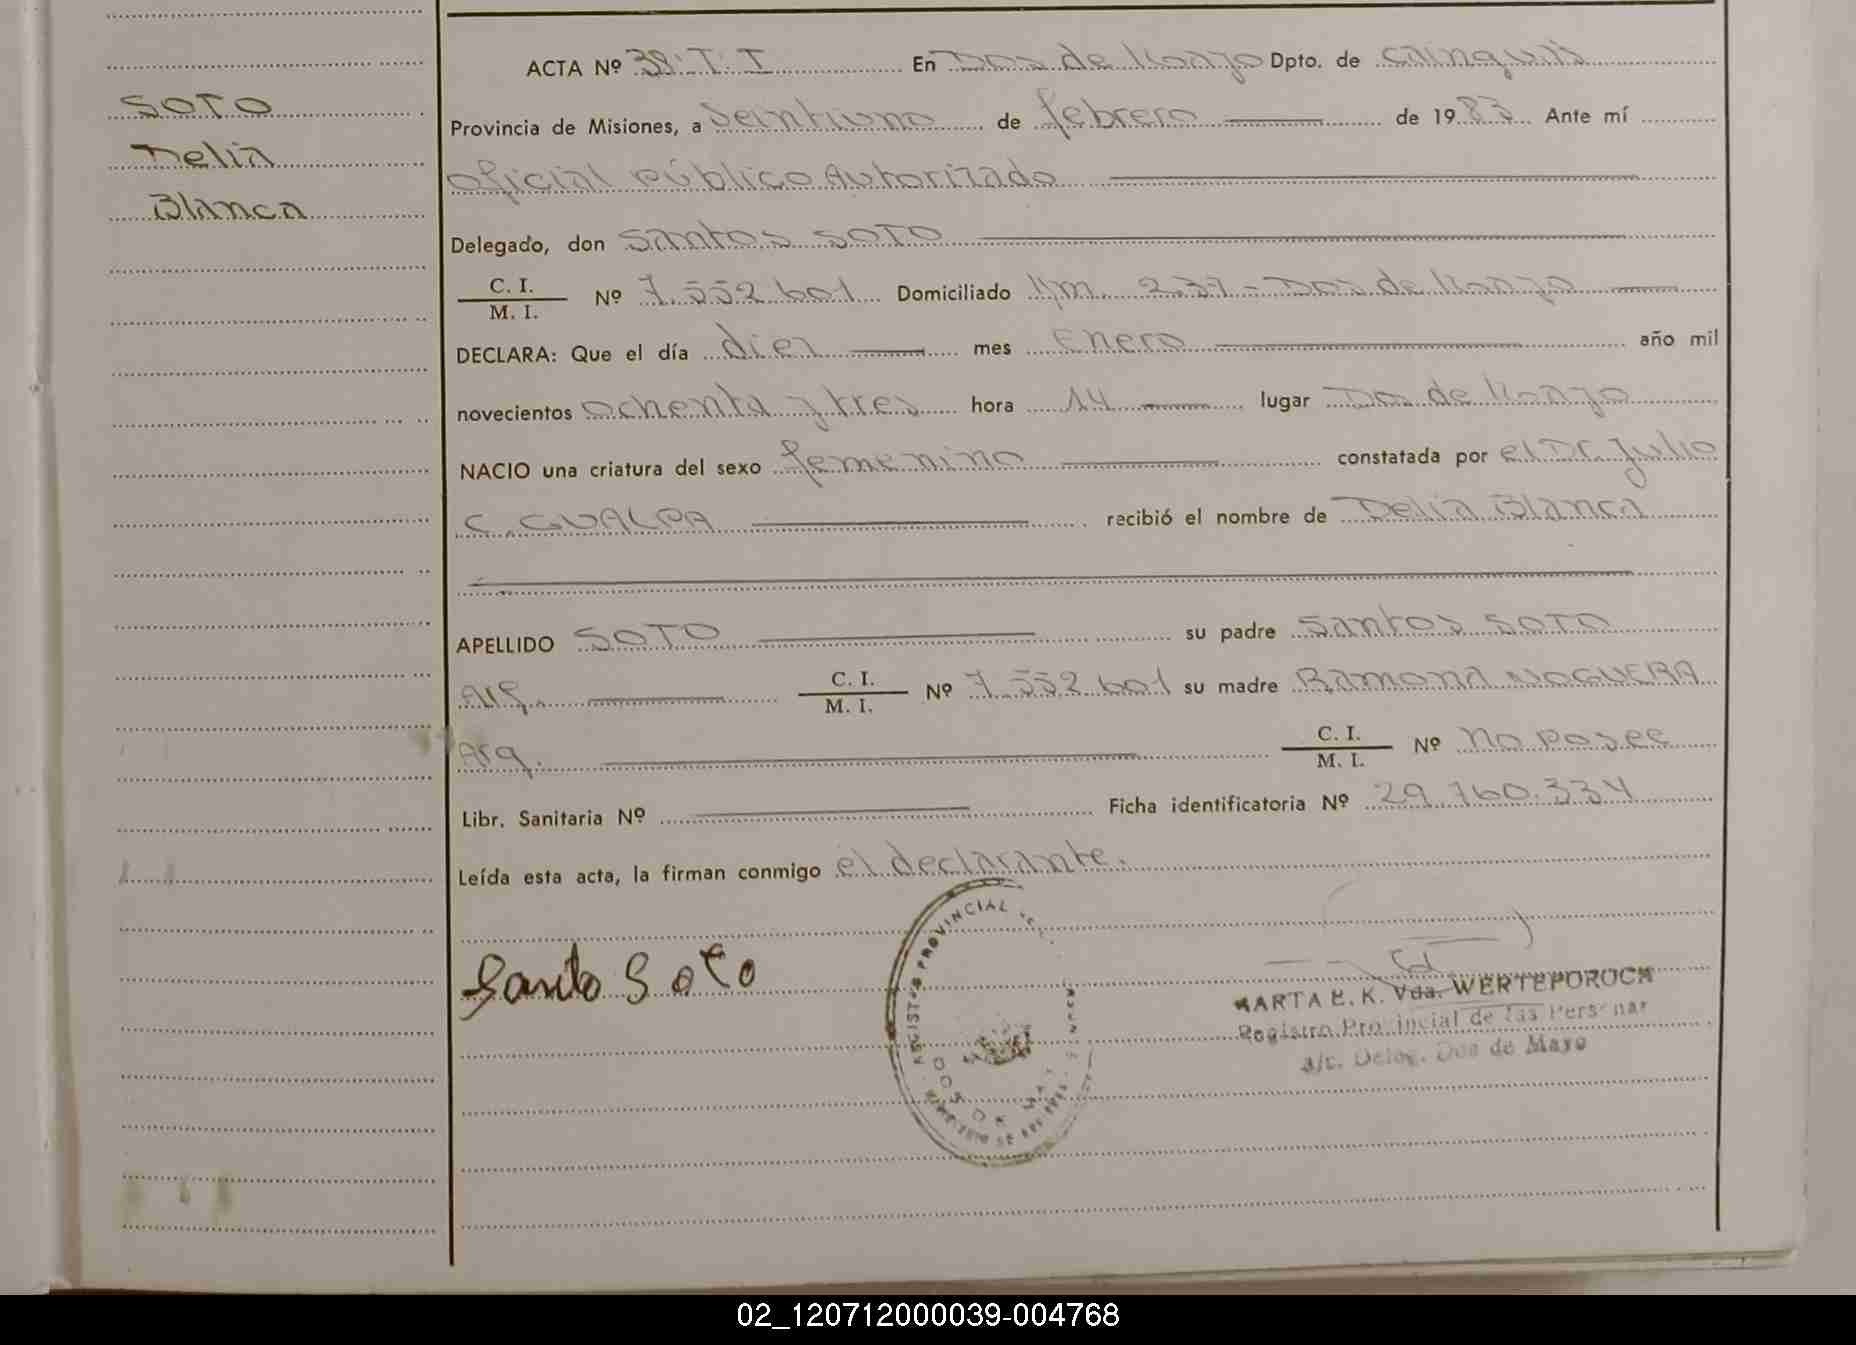 SOTO
Delia
Blanca
ACTA Nº 38·T·I En Dos de Mayo Dpto. de Cainguás
Provincia de Misiones, a veintiuno de febrero de 1983 Ante mí
Oficial Público Autorizado
Delegado, don Santos SOTO
C. I.
M. I. Nº 7.552.601 Domiciliado Km. 237 - Dos de Mayo
DECLARA: Que el día diez mes Enero año mil
novecientos ochenta y tres hora 14 lugar Dos de Mayo
NACIO una criatura del sexo femenino constatada por el Dr. Julio
C. GUALPA recibió el nombre de Delia Blanca
APELLIDO SOTO su padre Santos SOTO
Arg. C. I.
M. I. Nº 7.552.601 su madre Ramona NOGUERA
Arg. C. I.
M. I. Nº no posee
Libr. Sanitaria Nº Ficha identificatoria Nº 29.760.334
Leída esta acta, la firman conmigo el declarante.
Santo Soto
REGISTRO PROVINCIAL
MARTA E. K. Vda. WERTEPOROCH
Registro Provincial de las Personas
a/c. Deleg. Dos de Mayo
02_120712000039-004768